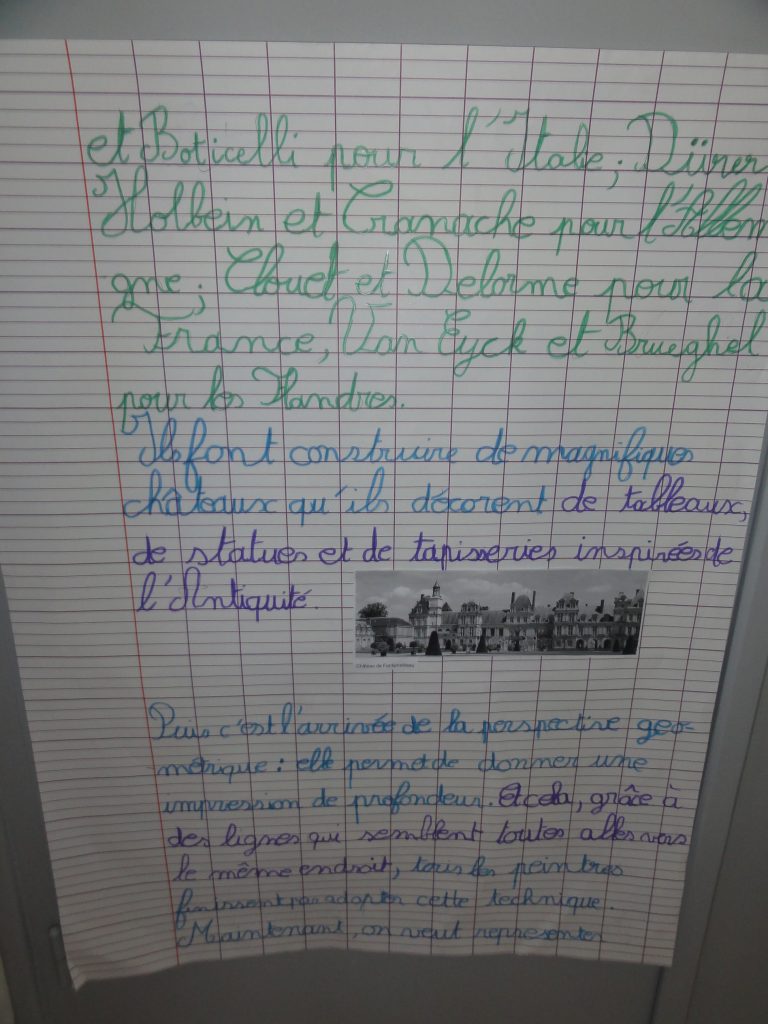 et Boticelli pour l'Italie; Dürer
Holbein et Cranache pour l'Allem
gne; Clouet et Delorme pour la
France, Van Eyck et Brueghel
pour les Flandres.
Ils font construire de magnifiques
châteaux qu'ils décorent de tableaux,
de statues et de tapisseries inspirées de
l'Antiquité.
Château de Fontainebleau
Puis c'est l'arrivée de la perspective géo-
métrique: elle permet de donner une
impression de profondeur. Et cela, grâce à
des lignes qui semblent toutes aller vers
le même endroit, tous les peintres
finissent par adopter cette technique.
Maintenant, on veut représenter